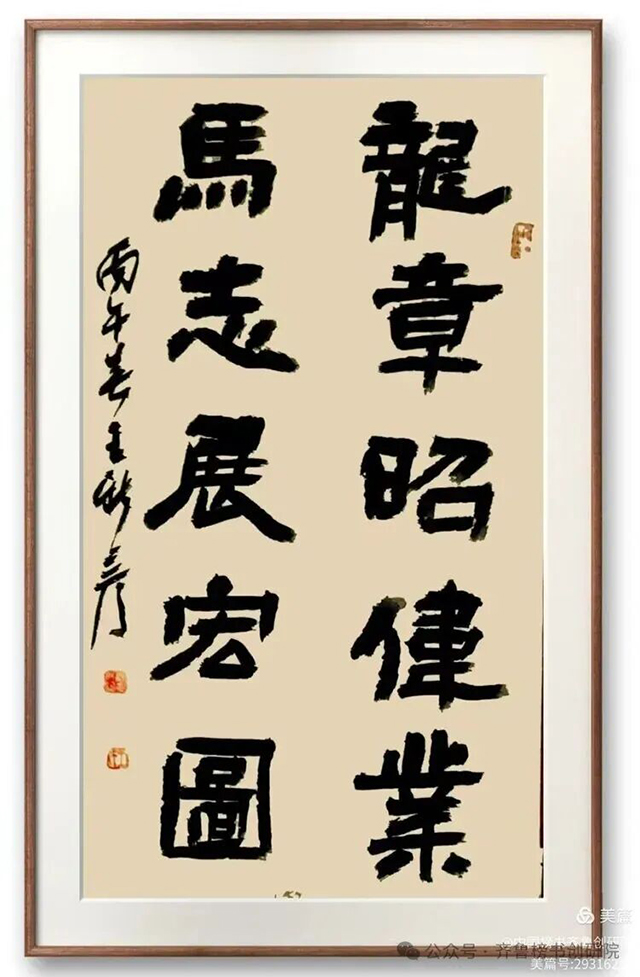 龍章昭偉業
馬志展宏圖
丙午春王新彦
美篇
公众号·齐鲁榜书创研院
美篇号:293162